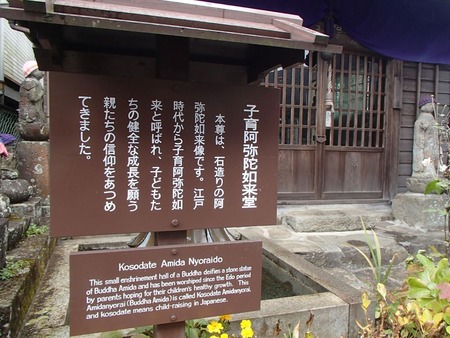 子育阿弥陀如来堂
本尊は、石造りの阿
弥陀如来像です。江戸
時代から子育阿弥陀如
来と呼ばれ、子どもた
ちの健全な成長を願う
親たちの信仰をあつめ
てきました。
Kosodate Amida Nyoraido
This small enshrinement hall of a Buddha deifies a stone statue
of Buddha Amida and has been worshiped since the Edo period
by parents hoping for their children's healthy growth. This
Amidanyorai (Buddha Amida) is called Kosodate Amidanyorai,
and kosodate means child-raising in Japanese.